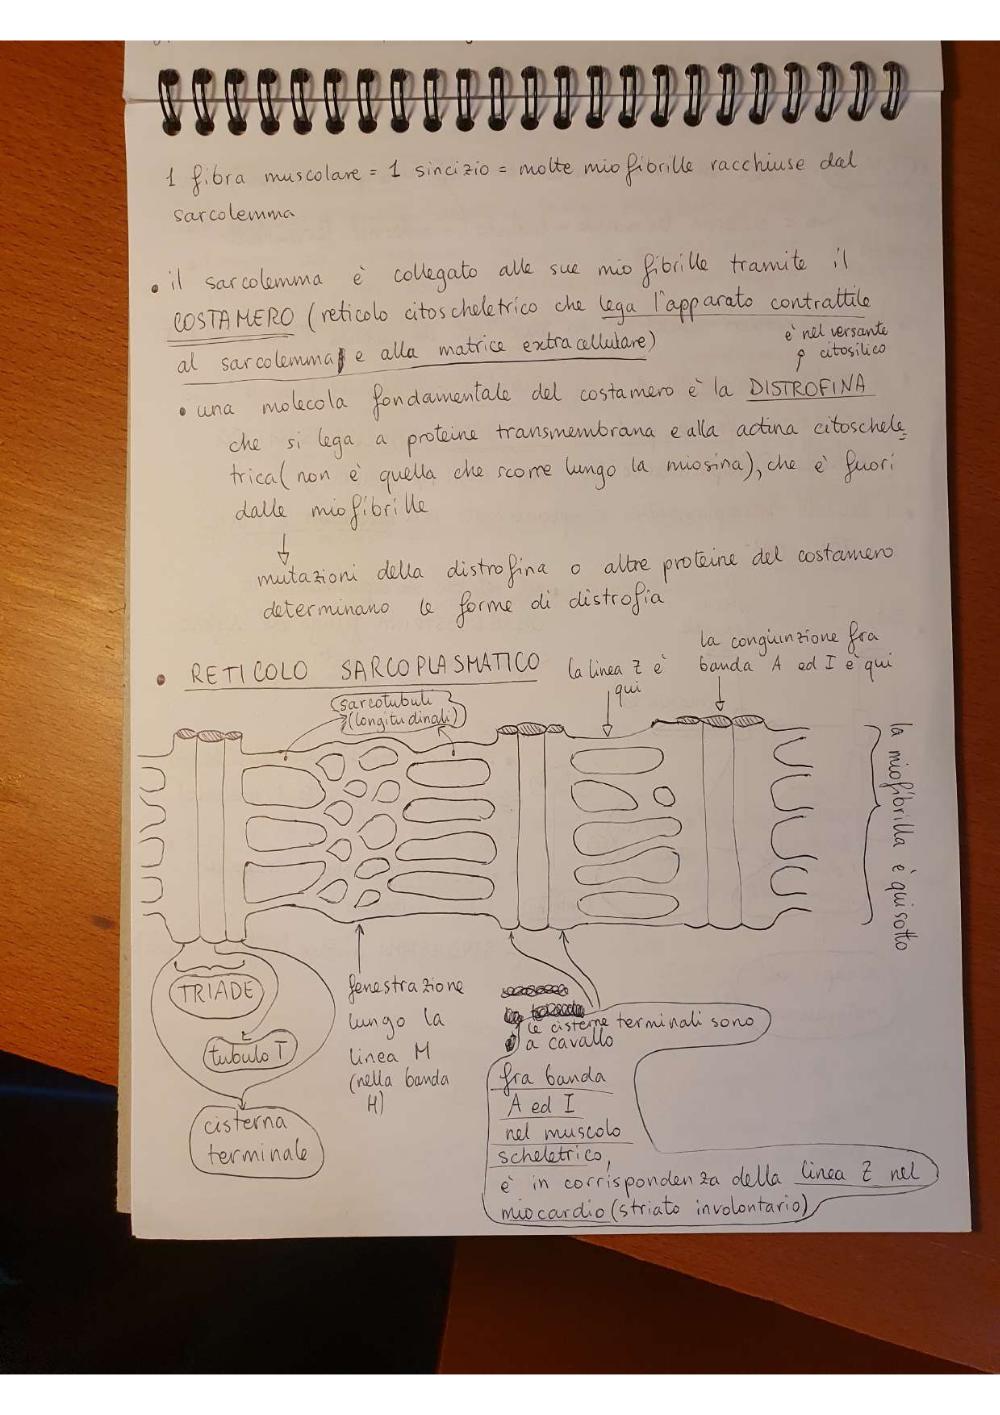 1 fibra muscolare = 1 sincizio = molte miofibrille racchiuse dal
sarcolemma
• il sarcolemma è collegato alle sue miofibrille tramite il
COSTAMERO (reticolo citoscheletrico che lega l'apparato contrattile
al sarcolemma e alla matrice extracellulare)
è nel versante
citosilico
• una molecola fondamentale del costamero è la DISTROFINA
che si lega a proteine transmembrana e alla actina citoschele
trica (non è quella che scorre lungo la miosina), che è fuori
dalle miofibrille
↓
mutazioni della distrofina o altre proteine del costamero
determinano le forme di distrofia
• RETICOLO SARCOPLASMATICO
la linea Z è
qui
la congiunzione fra
banda A ed I è qui
sarcotubuli
(longitudinali)
la miofibrilla è qui sotto
TRIADE
tubulo T
cisterna
terminale
fenestrazione
lungo la
linea M
(nella banda
H)
le cisterne terminali sono
a cavallo
fra banda
A ed I
nel muscolo
scheletrico,
è in corrispondenza della linea Z nel
miocardio (striato involontario)